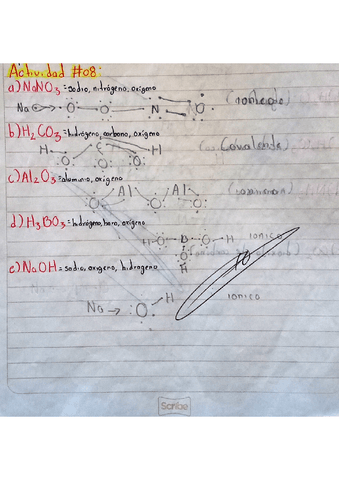 Actividad #08:
a) NaNO3 = sodio, nitrógeno, oxígeno
Na O O N O
b) H2CO3 = hidrógeno, carbono, oxígeno
H C H Covalente
O O O
c) Al2O3 = aluminio, oxígeno
Al Al
O O O
d) H3BO3 = hidrógeno, boro, oxígeno
H O B O H ionico
O
H
10
e) NaOH = sodio, oxigeno, hidrogeno
Na → O H ionico
Scribe